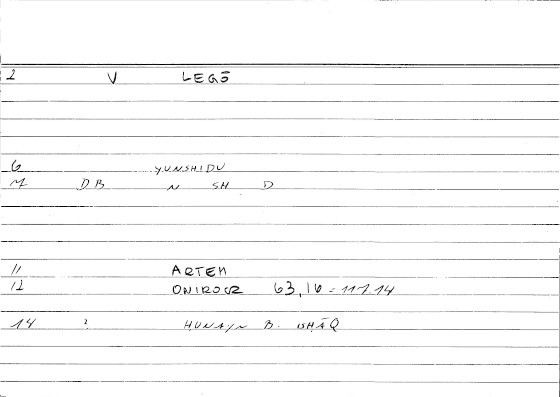 2 V LEGŌ
6 YUNSHIDU
M DB N SH D
11 ARTEM
12 ONIROCR 63,16 = 117.14
14 ? HUNAYN B. ISHĀQ